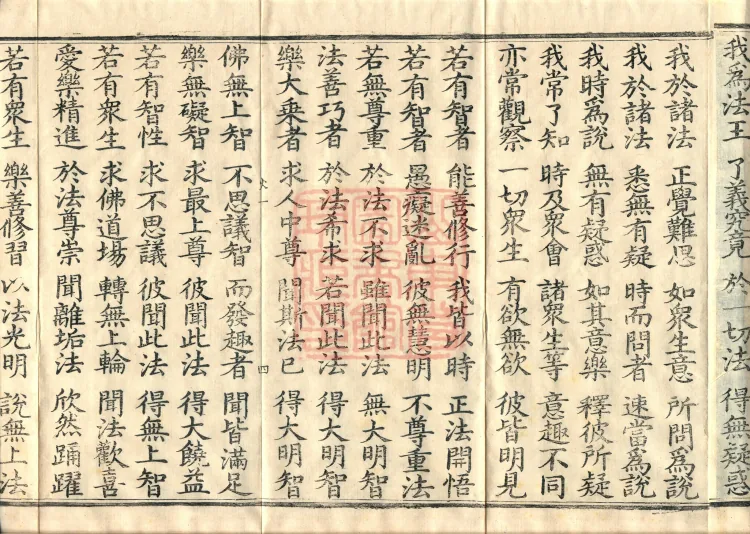 我為法王 了義究竟 於一切法 得無疑惑
我於諸法 正覺難思 如眾生意 所問為說
我於諸法 悉無有疑 時而問者 速當為說
我時為說 無有疑惑 如其意樂 釋彼所疑
我常了知 時及眾會 諸眾生等 意趣不同
亦常觀察 一切眾生 有欲無欲 彼皆明見
若有智者 能善修行 我皆以時 正法開悟
若有智者 愚癡迷亂 彼無慧明 不尊重法
若無尊重 於法不求 雖聞此法 無大明智
法善巧者 於法希求 若聞此法 得大明智
樂大乘者 求人中尊 聞斯法已 得大明智
四
佛無上智 不思議智 而發趣者 聞皆滿足
樂無礙智 求最上尊 彼聞此法 得大饒益
若有智性 求不思議 彼聞此法 得無上智
若有眾生 求佛道場 轉無上輪 聞法歡喜
愛樂精進 於法尊崇 聞離垢法 欣然踊躍
若有眾生 樂善修習 以法光明 說無上法